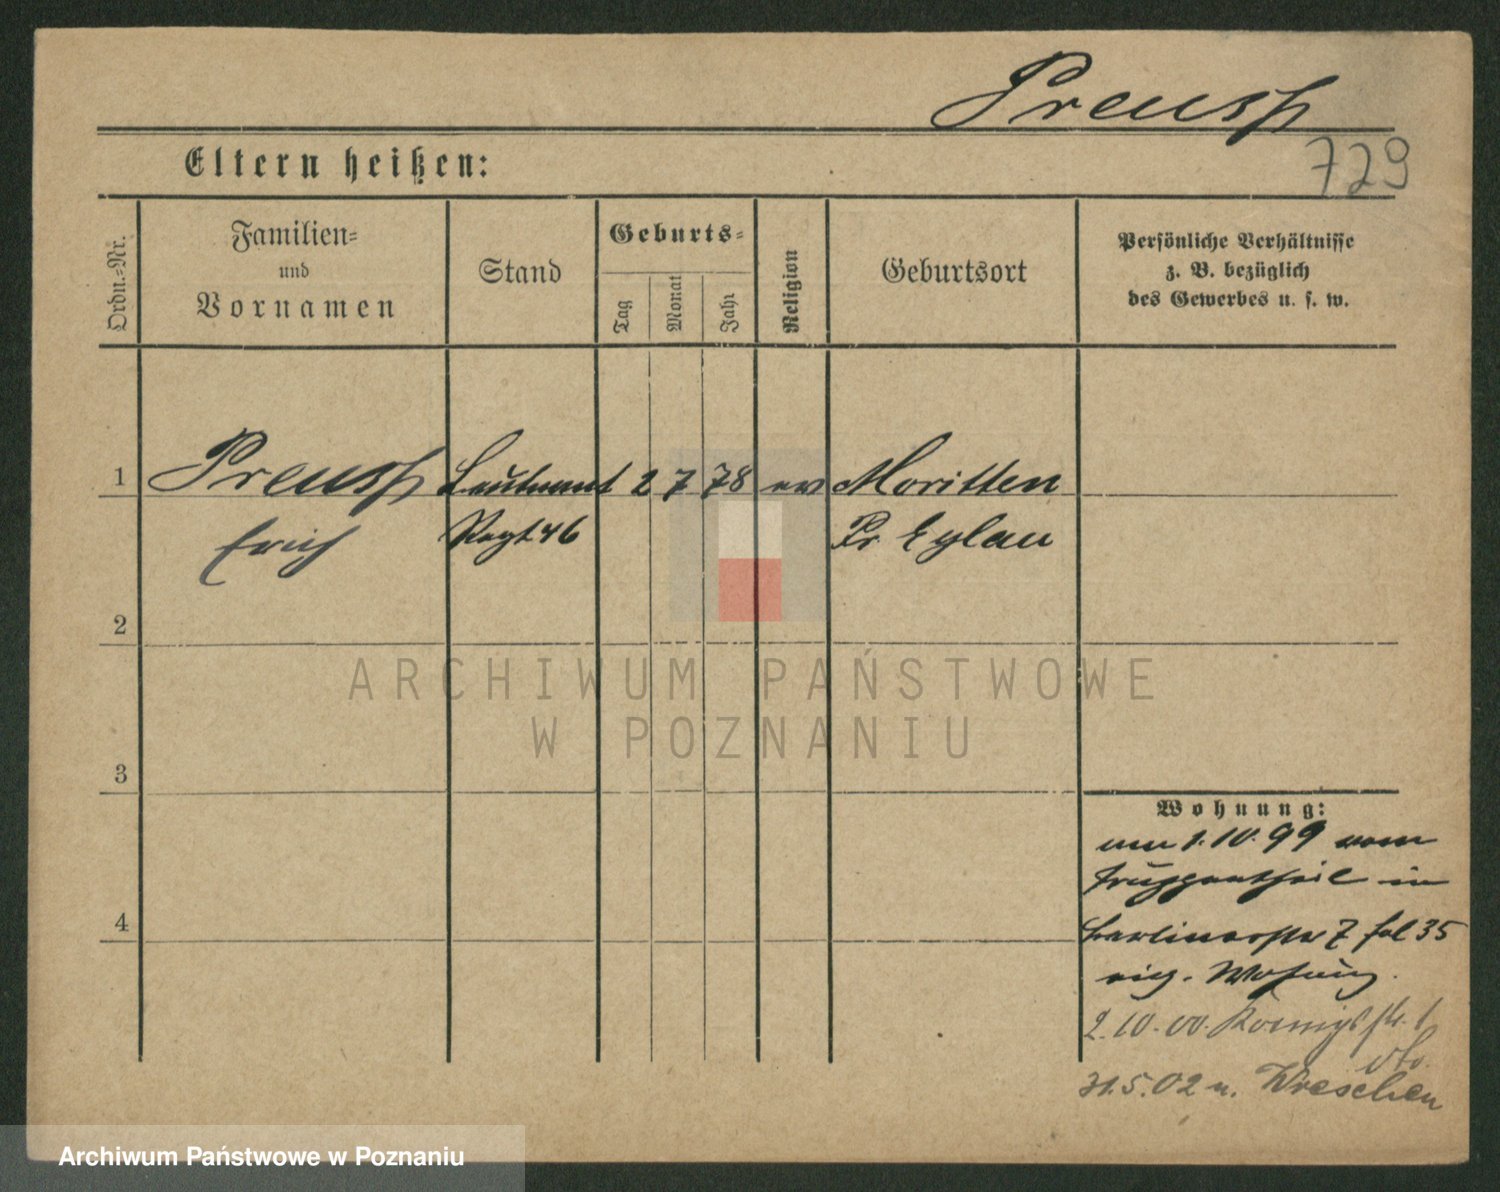 Preuß
729
Eltern heißen:
Ordn.-Nr.
Familien-
und
Vornamen
Stand
Geburts-
Tag
Monat
Jahr
Religion
Geburtsort
Persönliche Verhältnisse
z. B. bezüglich
des Gewerbes u. s. w.
1 Preuß Leutnant 2 7 78 ev Moritten
Erich Regt 46 Pr Eylau
2
3
4
ARCHIWUM PAŃSTWOWE
W POZNANIU
Wohnung:
1.10.99 vom
Truppentheil in
Berlinerstr 7 35
eig. Wohnung.
2.10.00. Koenigsstr. 1
31.5.02 n. Wreschen
Archiwum Państwowe w Poznaniu